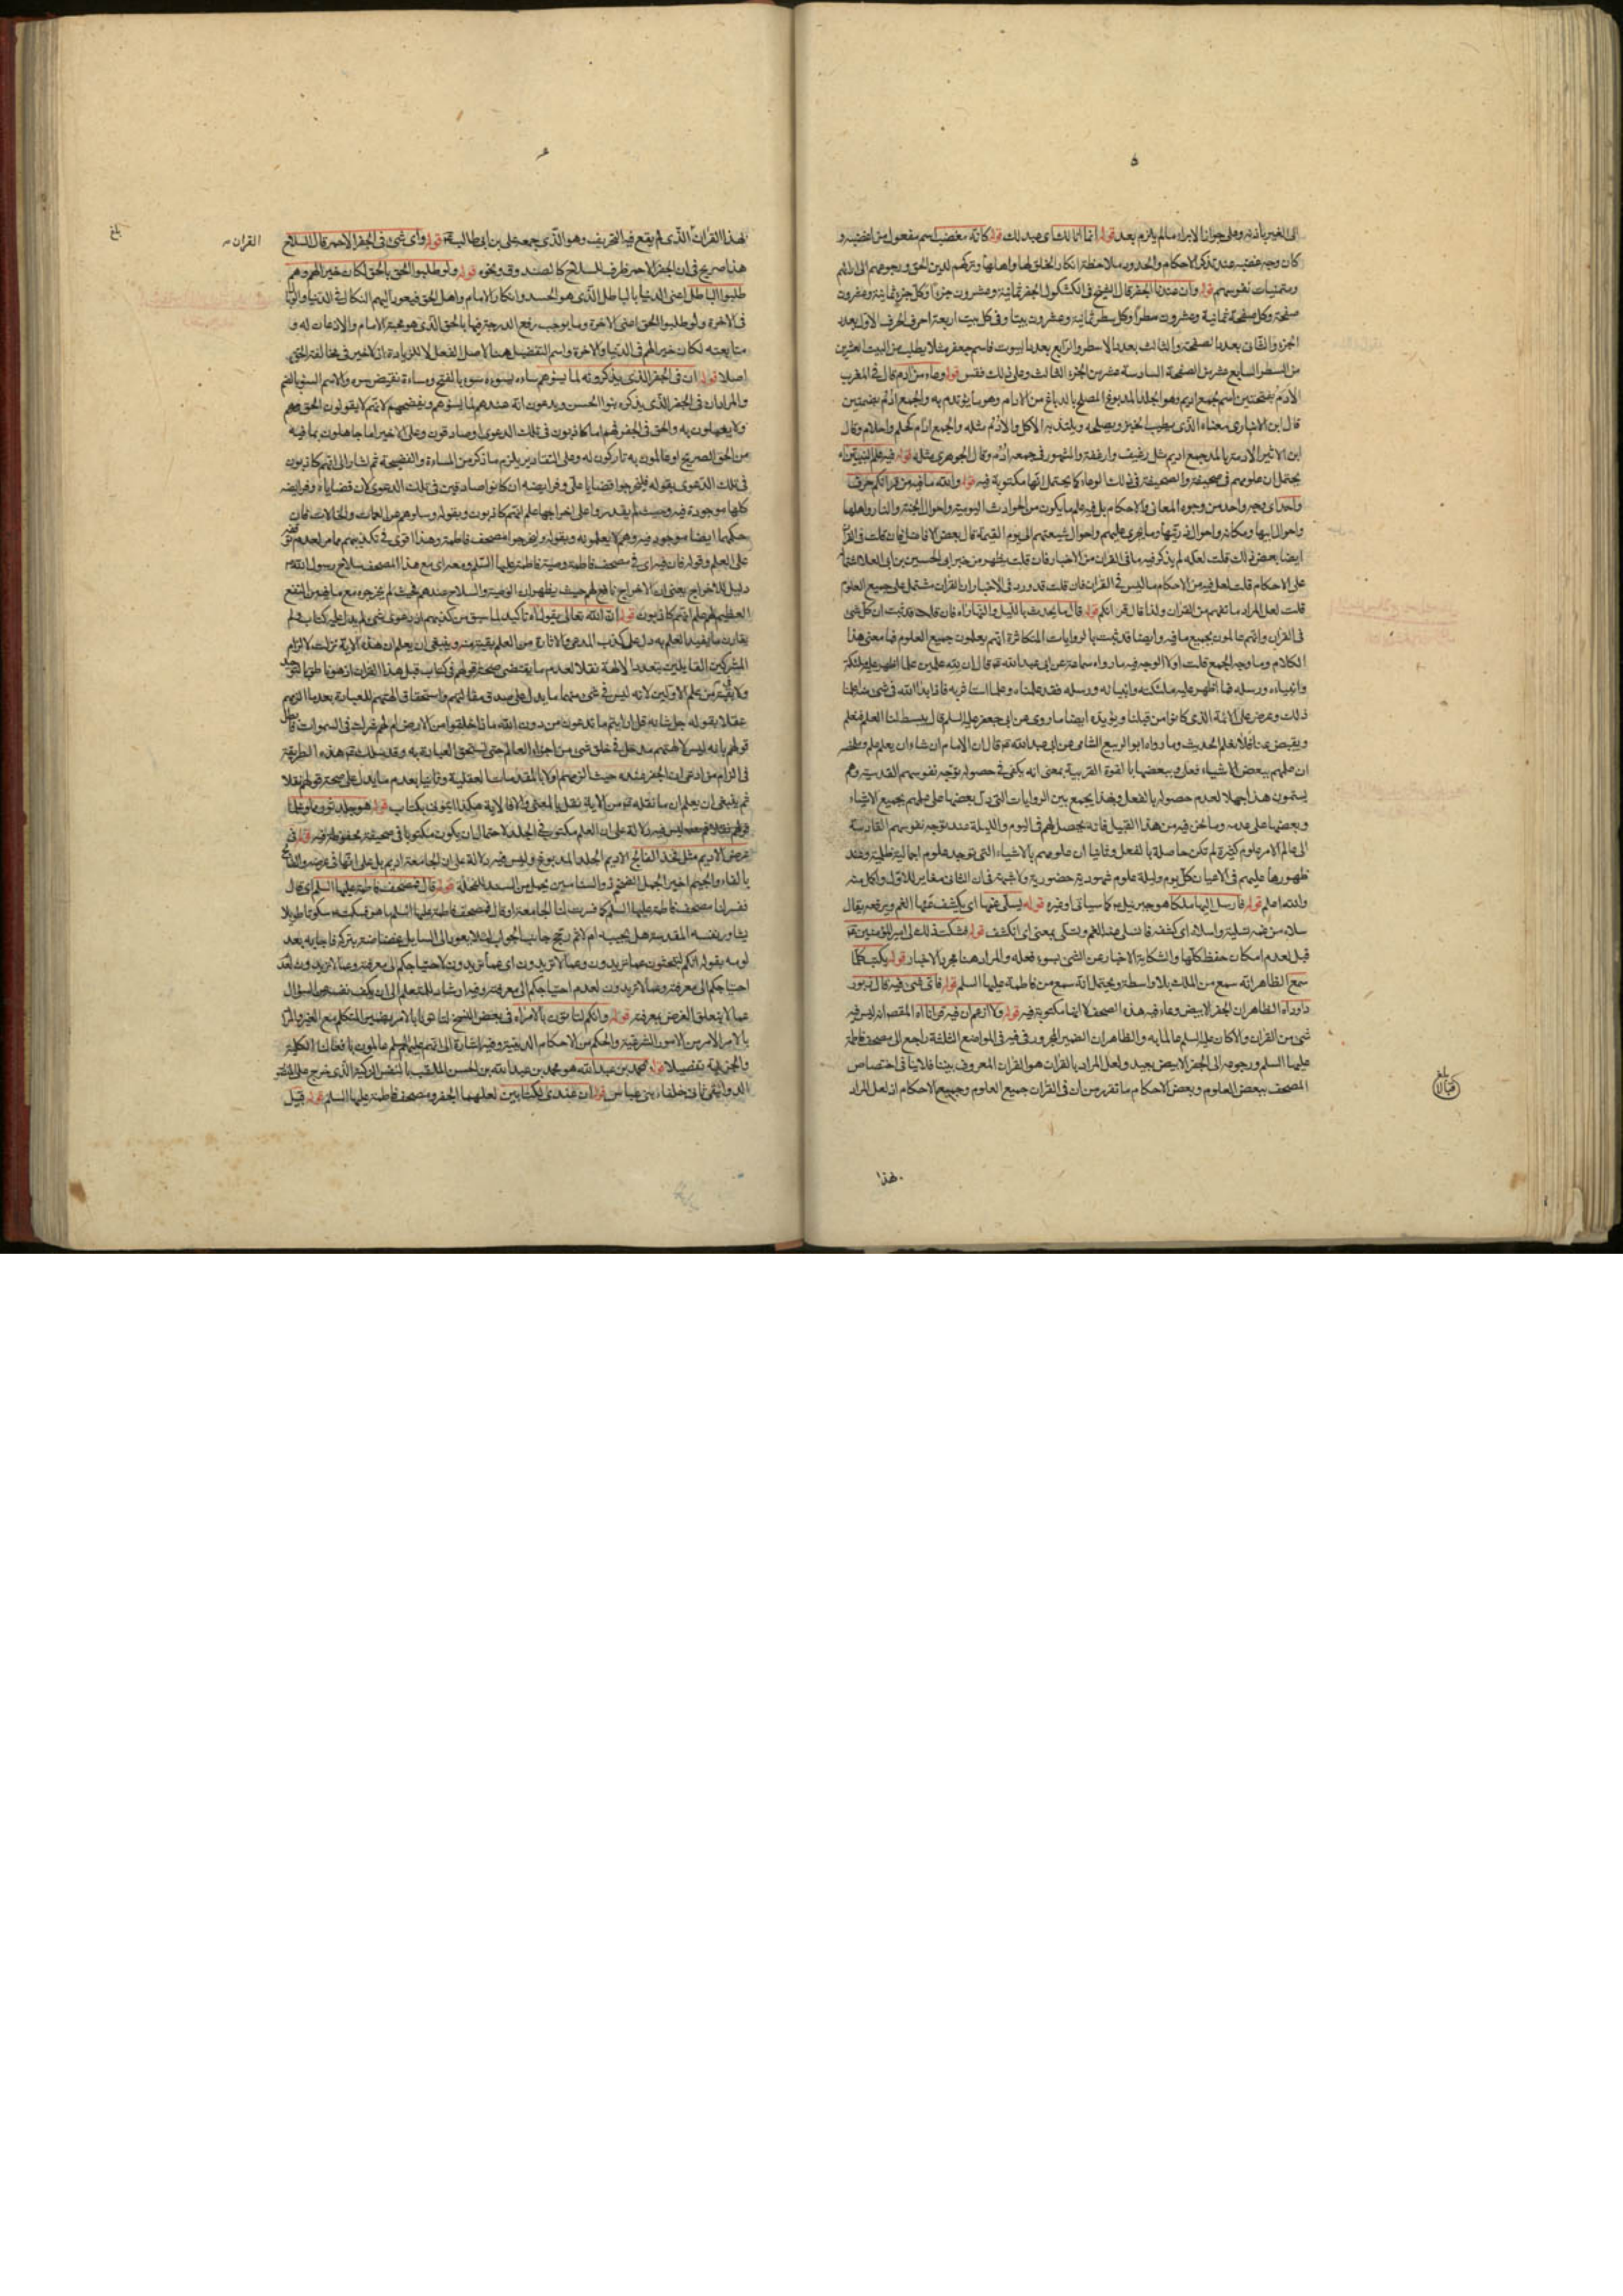 ٥
الى الغير باذنه وعلى جواز الابراء مالم يلزم بعد قوله انما انا لك اى عبد لك قوله كانه مغضب اسم مفعول من اغضبه و
كان وجه غضبه عند تذكر الاحكام والحدود ملاحظة انكار الخلق لها واهلها وتركهم لدين الحق ورجوعهم الى
ومتمنيات نفوسهم قوله وان عندنا الجفر قال الشيخ فى الكشكول الجفر ثمانية وعشرون جزءا وكل جزء ثمانية وعشرون
صفحة وكل صفحة ثمانية وعشرون سطرا وكل سطر ثمانية وعشرون بيتا وفى كل بيت اربعة احرف الحرف الاول بعدد
الجزء والثانى بعدد الصفحة والثالث بعدد الاسطر والرابع بعدد البيوت فاسم جعفر مثلا يطلب من البيت العشرين
من السطر السابع عشر من الصفحة السادسة عشر من الجزء الثالث وعلى ذلك فقس قوله وعاء من ادم قال فى المغرب
الادم بفتحتين اسم لجمع اديم وهو الجلد المدبوغ المصلح بالدباغ من الادام وهو ما يؤتدم به والجمع ادم بضمتين
قال ابن الانبارى معناه الذى يطيب الخبز ويصلحه ويلتذ به الاكل والادم مثله والجمع ادام كحلم واحلام وقال
ابن الاثير الادمة بالمد جمع اديم مثل رغيف وارغفة والمشهور فى جمعه ادم وقال الجوهرى مثله قوله فيه علم النبيين اه
يحتمل ان علومهم فى صحيفة والصحيفة فى ذلك الوعاء كما يحتمل انها مكتوبة فيه قوله والله ما فيه من قرانكم حرف
واحد اى فيه واحد من وجوه المعانى والاحكام بل فيه علم ما يكون من الحوادث اليومية واحوال الجنة والنار واهلها
واحوال ابيها ومكانه واحوال ذريتها وما يجرى عليهم واحوال شيعتهم الى يوم القيمة قال بعض الافاضل فان قلت فى القران
ايضا بعض ذلك قلت لعله لم يذكر فيه ما فى القران من الاخبار فان قلت يظهر من خبر ابى الحسين بن ابى العلا اشتماله
على الاحكام قلت لعل فيه من الاحكام ما ليس فى القران فان قلت قد ورد فى الاخبار ان القران مشتمل على جميع العلوم
قلت لعل المراد ما تفهم من القران ولذا قال قرانكم قوله قال ما يحدث بالليل والنهار اه فان قلت قد ثبت ان كل شئ
فى القران وانهم عالمون بجميع ما فيه وايضا قد ثبت بالروايات المتكاثرة انهم يعلمون جميع العلوم فما معنى هذا
الكلام وما وجه الجمع قلت اولا الوجه فيه ما رواه سماعة عن ابى عبد الله ع قال ان لله علمين علما اظهر عليه ملئكته
وانبياءه ورسله فما اظهر عليه ملئكته وانبياءه ورسله فقد علمناه وعلما استاثر به فاذا بدا لله فى شئ منه اعلمنا
ذلك وعرض على الائمة الذى كانوا من قبلنا ويؤيده ايضا ما روى عن ابى جعفر عليه السلم قال يبسط لنا العلم فنعلم
ويقبض عنا فلا نعلم الحديث وما رواه ابو الربيع الشامى عن ابى عبد الله ع قال ان الامام ان شاء ان يعلم علم
ان علمهم ببعض الاشياء فعل وببعضها بالقوة القريبة بمعنى انه يكفى فى حصوله توجه نفوسهم القدسية وهم
يسمون هذا جهلا لعدم حصوله بالفعل وبهذا يجمع بين الروايات التى دل بعضها على علمهم بجميع الاشياء
وبعضها على عدمه وما نحن فيه من هذا القبيل فانه يحصل لهم فى اليوم والليلة عند توجه نفوسهم القادسة
الى عالم الامر علوم كثيرة لم تكن حاصلة بالفعل وثانيا ان علومهم بالاشياء التى توجد علوم اجمالية ظلية وعند
ظهورها عليهم فى الاعيان كل يوم وليلة علوم شهودية حضورية ولا شبهة فى ان الثانى مغاير للاول واكمل منه
والله اعلم قوله فارسل اليها ملكا هو جبرئيل ع كما سياتى اوغيره قوله يسلى غمها اى يكشف عنها الغم ويرفعه يقال
سلاه من همه تسلية واسلاه اى كشفه فانسلى عنه الغم وتسلى بمعنى اى انكشف قوله فشكت ذلك الى امير المؤمنين ع
قيل لعدم امكان حفظ كلها والشكاية الاخبار عن الشئ بسوء فعله والمراد هنا مجرد الاخبار قوله يكتب كلما
سمع الظاهر انه سمع من الملك بلا واسطة ويحتمل انه سمع من فاطمة عليها السلم قوله فاى شئ فيه قال زبور
داود اه الظاهر ان الجفر الابيض وعاء فيه هذه الصحف لا انها مكتوبة فيه قوله ولا ازعم ان فيه قرانا اه المقصد انه ليس فيه
شئ من القران والا كان عليه السلم عالما به والظاهر ان الضمير المجرور فى فيه فى المواضع الثلثة راجع الى مصحف فاطمة
عليها السلم ورجوعه الى الجفر الابيض بعيد ولعل المراد بالقران هو القران المعروف بيننا فلا ينافى اختصاص
المصحف ببعض العلوم وبعض الاحكام ما تقرر من ان فى القران جميع العلوم وجميع الاحكام اذ لعل المراد
بلغ
بهذا
بهذا القران الذى لم يقع فيه التحريف وهو الذى جمعه على بن ابى طالب ع قوله واى شئ فى الجفر الاحمر قال السلاح
القران
بلغ
هذا صريح فى ان الجفر الاحمر ظرف للسلاح كالصندوق ونحوه قوله ولو طلبوا الحق بالحق لكان خيرا لهم وهم
طلبوا الباطل اعنى الدنيا بالباطل الذى هو الحسد وانكار الامام واهل الحق فيعود اليهم النكال فى الدنيا
فى الاخرة ولو طلبوا الحق اعنى الاخرة وما يوجب رفع الدرجة فيها بالحق الذى هو محبة الامام والاذعان له و
متابعته لكان خيرا لهم فى الدنيا والاخرة واسم التفضيل هنا لاصل الفعل لا للزيادة اذ لا خير فى مخالفة الحق
اصلا قوله ان فى الجفر الذى يذكرونه لما يسوءهم ساءه يسوءه سوءا بالفتح ومساءة نقيض سره والاسم السوء بالضم
والمراد ان فى الجفر الذى يذكره بنوا الحسن ويدعون انه عندهم لما يسوءهم ويفضحهم لانهم لا يقولون الحق
ولا يعملون به والحق فى الجفر فهم اما كاذبون فى تلك الدعوى او صادقون وعلى الاخير اما جاهلون بما فيه
من الحق الصريح او عالمون به تاركون له وعلى التقادير يلزم ما ذكر من المساءة والفضيحة ثم اشار الى انهم كاذبون
فى تلك الدعوى بقوله فليخرجوا قضايا على وفرايضه ان كانوا صادقين فى تلك الدعوى لان قضاياه وفرايضه
كلها موجودة فيه وحيث لم يقدروا على اخراجها علم انهم كاذبون وبقوله وسلوهم عن العمات والخالات فان
حكمها ايضا موجود فيه وهم لا يعلمونه وبقوله وليخرجوا مصحف فاطمة وهذا اقوى فى تكذيبهم
على العلم وقوله فان فيه اى فى مصحف فاطمة وصية فاطمة عليها السلم ومعه اى مع هذا المصحف سلاح رسول الله
دليل للاخراج يعنى ان الاخراج نافع لهم حيث يظهر ان الوصية والسلاح عندهم فحيث لم يخرجوه مع ما فيه من النفع
العظيم لهم علم انهم كاذبون قوله ان الله تعالى يقول اه تاكيد لما سبق من كذبهم اذ دعوى شئ لم يدل عليه كتاب ولم
يقارن ما يفيد العلم به دل على كذب المدعى والاثارة من العلم بقية منه وينبغى ان يعلم ان هذه الاية نزلت لالزام
المشركين القايلين بتعدد الالهة نقلا لعدم ما يقتضى صحة قولهم فى كتاب قبل هذا القران
ولا بقية من علم الاولين لانه ليس فى شئ منهما ما يدل على صدق مقالتهم واستحقاق الهتهم للعبادة بعدما الزمهم
عقلا بقوله جل شانه قل ارايتم ما تدعون من دون الله ماذا خلقوا من الارض ام لهم شرك فى السموات
قولهم بانه ليس لالهتهم مدخل فى خلق شئ من اجزاء العالم حتى يستحق العبادة به وقد سلك ع هذه الطريقة
فى الزام من ادعى ان الجفر عنده حيث الزمهم اولا بالمقدمات العقلية وثانيا بعدم ما يدل على صحة قولهم نقلا
ثم ينبغى ان يعلم ان ما نقله ع من الاية نقل بالمعنى والا فالاية هكذا ايتونى بكتاب قوله هو جلد ثور مملو علما
ليس فيه دلالة على ان العلم مكتوب فى الجلد لاحتمال ان يكون مكتوبا فى صحيفة محفوظة فيه قوله فى
عرض الاديم مثل فخذ الفالج الاديم الجلد المدبوغ وليس فيه دلالة على ان الجامعة اديم بل على انها فى عرضه والفالج
بالفاء والجيم اخيرا الجمل الضخم ذو السنامين يحمل من السند للفحلة قوله قال فمصحف فاطمة عليها السلم اى قال
ففسر لنا مصحف فاطمة عليها السلم كما فسرت لنا الجامعة او قال فمصحف فاطمة عليها السلم ما هو فسكت سكوتا طويلا
يشاور نفسه المقدسة هل يجيبه ام لا ثم رجح جانب الجواب لئلا يعود الى السايل غضاضة بتركه فاجابه بعد
لومه بقوله انكم لتبحثون عما تريدون وعما لا تريدون اى عما تريدون لاحتياجكم الى معرفته وعما لا تريدون لعدم
احتياجكم الى معرفته وعما لا تريدون لعدم احتياجكم الى معرفته وفيه ارشاد للمتعلم الى ان يكف نفسه عن السؤال
عما لا يتعلق الغرض بمعرفته قوله وانكم لتاتون بالامر اه فى بعض النسخ لتاتونا بالامر بضمير المتكلم مع الغير والمراد
بالامر الامر من الامور الشرعية والحكم من الاحكام الدينية وفيه اشارة الى انهم عليهم السلم عالمون بافعالنا الكلية
والجزئية تفصيلا قوله محمد بن عبد الله هو محمد بن عبد الله بن الحسن الملقب بالنفس الزكية الذى خرج على المنصور
الدوانيقى ثانى خلفاء بنى عباس قوله ان عندى لكتابين لعلهما الجفر ومصحف فاطمة عليها السلم قوله قبيل